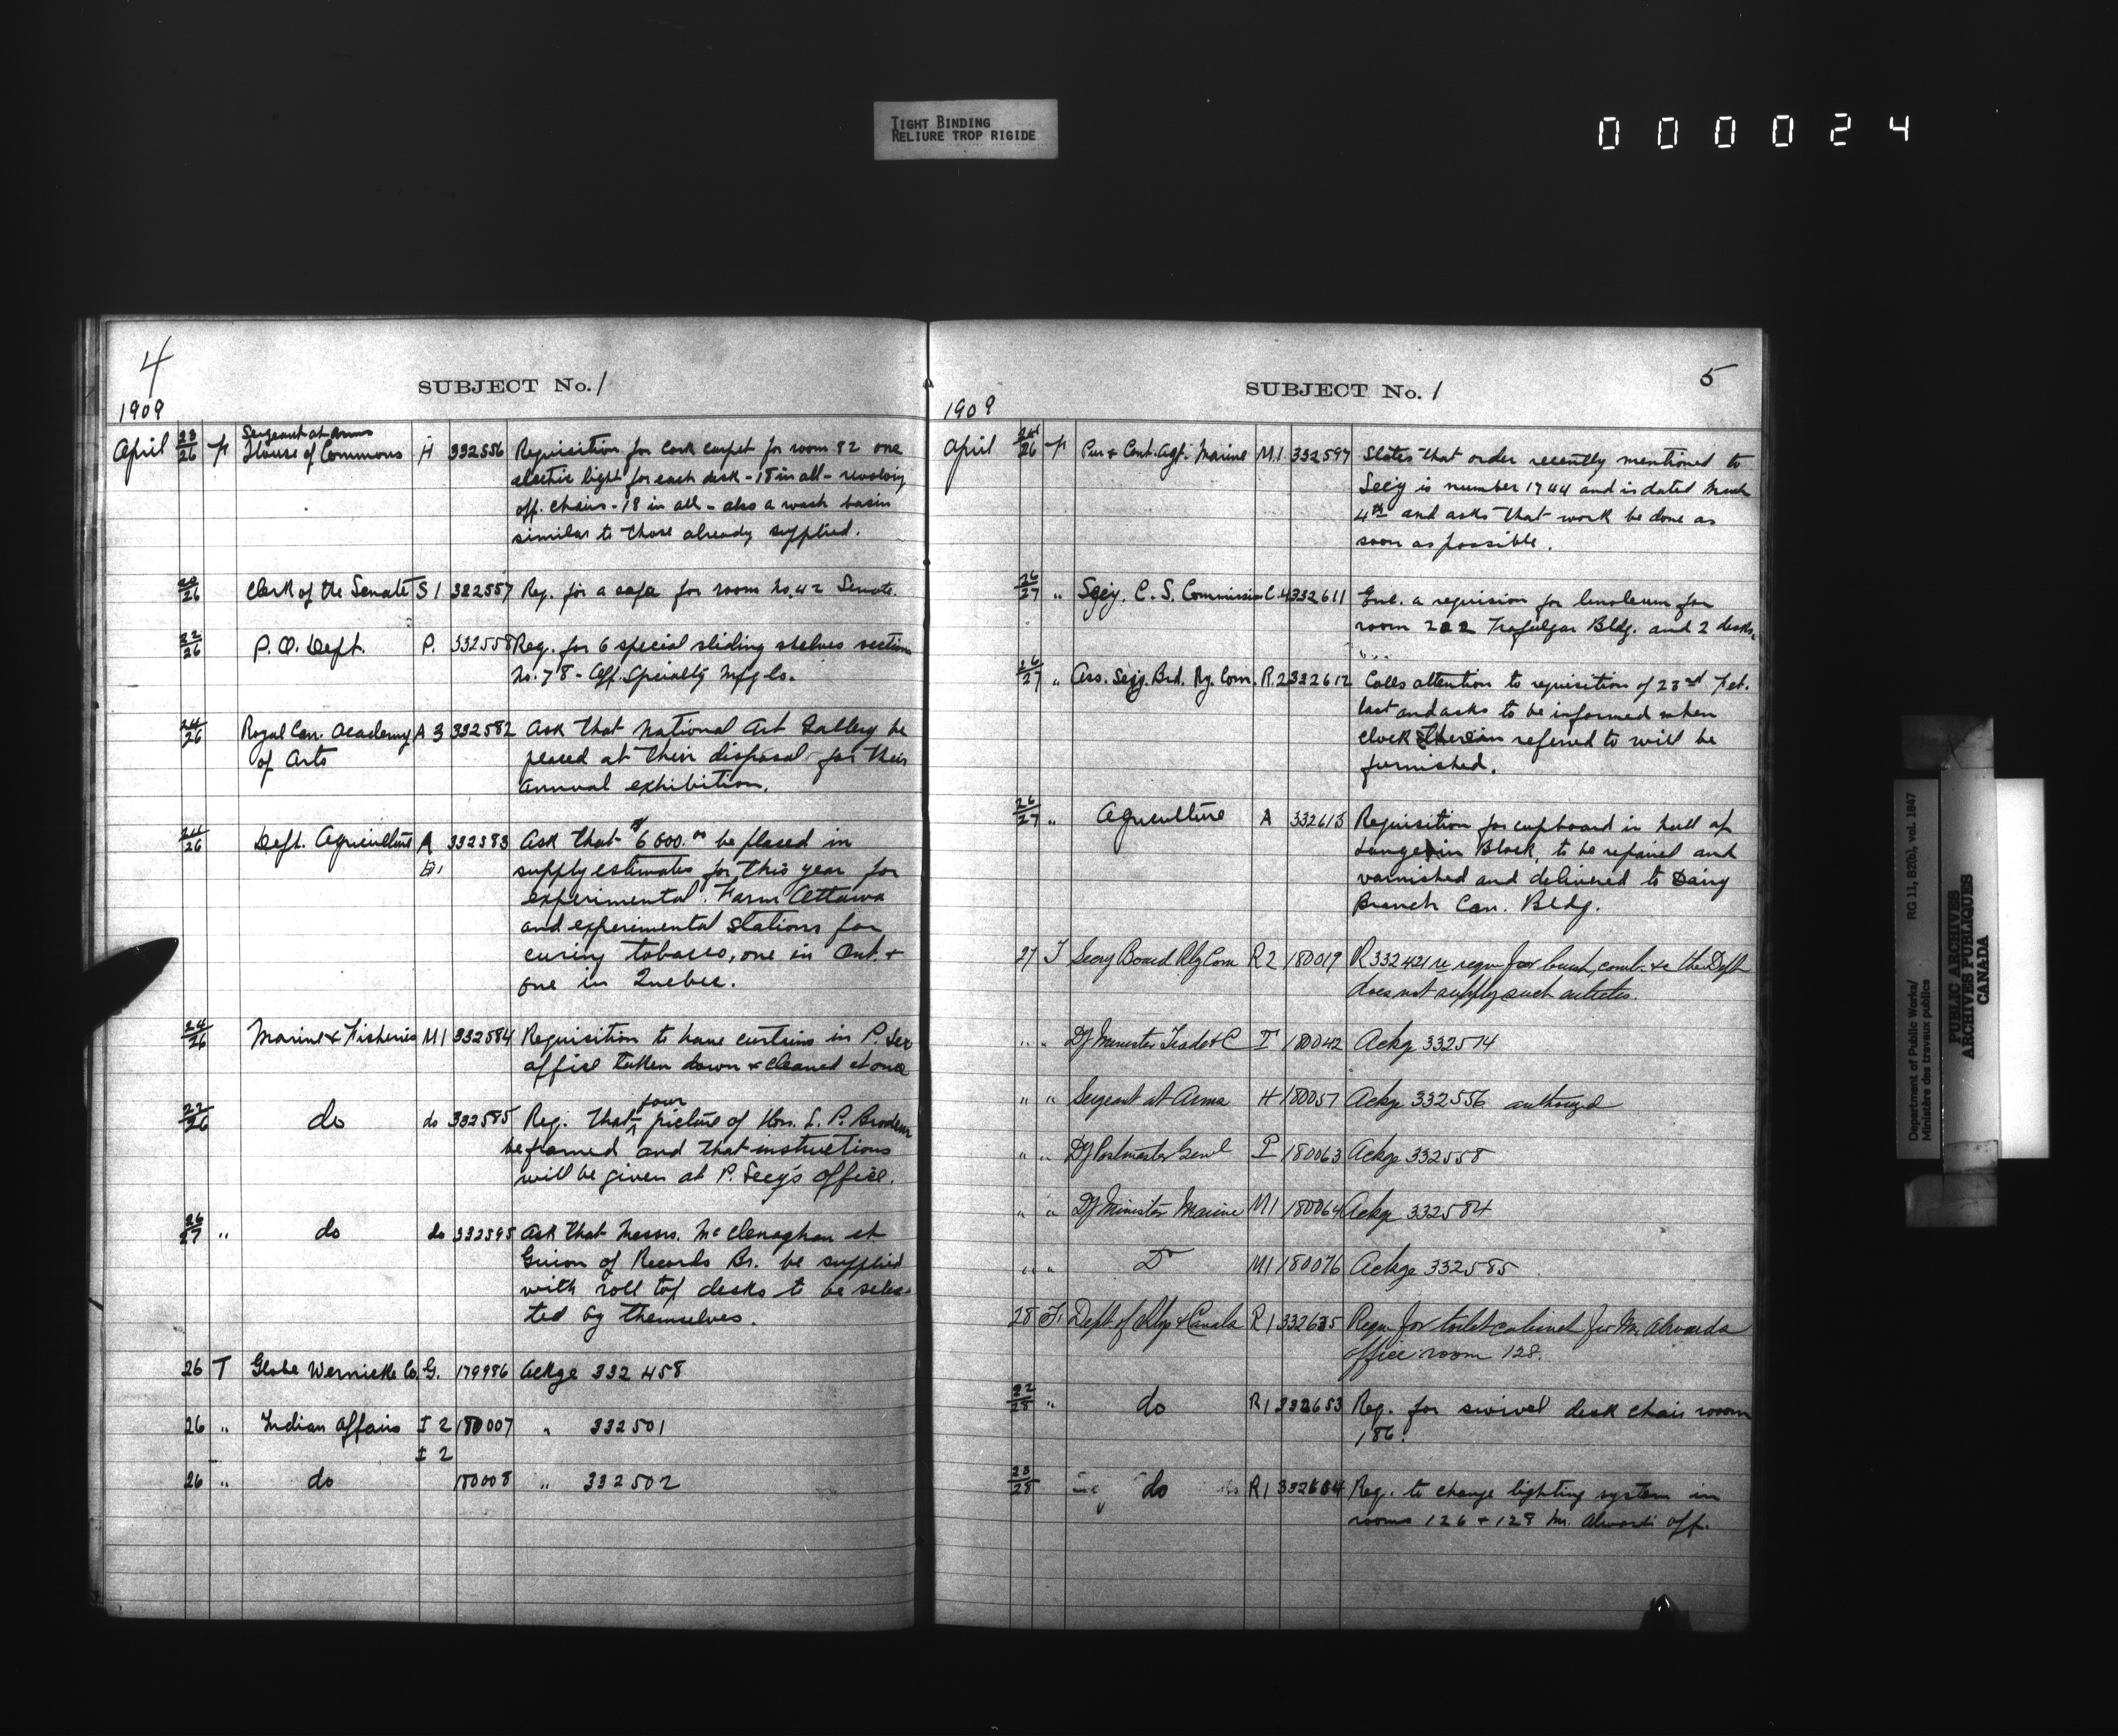 TIGHT BINDING
RELIURE TROP RIGIDE
000024
4
SUBJECT No. 1
1909
April 23/26 Fr Sergeant at Arms
House of Commons H 332556 Requisition for cork carpet for room 82 one
electric light for each desk - 18 in all - revolving
off. chairs - 18 in all - also a wash basin
similar to those already supplied.
/26 Clerk of the Senate S 1 332557 Req. for a safe for room No. 42 Senate.
22/26 P.O. Dept. P. 332558 Req. for 6 special sliding shelves section
No. 78 - Off. Specialty Mfg Co.
24/26 Royal Can. Academy A 3 332582 Ask that National Art Gallery be
of Arts placed at their disposal for their
annual exhibition.
24/26 Dept. Agriculture A 332583 Ask that $6000.00 be placed in
supply estimates for this year for
experimental Farm Ottawa
and experimental stations for
curing tobacco, one in Ont. +
one in Quebec.
24/26 Marine & Fisheries M1 332584 Requisition to have curtains in P. Sec
office taken down & cleaned at once
22/26 do do 332585 Req. that four picture of Hon. L. P. Brodeur
be framed and that instructions
will be given at P. Secy's office.
26/27 " do do 332595 Ask that Messrs. McClenaghan et
of Records Br. be supplied
with roll top desks to be selec
ted by themselves.
26 T Globe Wernicke Co. G. 179986 Ackge 332458
26 " Indian Affairs I 2 180007 " 332501
I 2
26 " do 180008 " 332502
5
SUBJECT No. 1
1909
April 24/26 Fr Pur & Cont. Agt. Marine M.1 332597 States that order recently mentioned to
Secy is number 1744 and is dated March
4th and asks that work be done as
soon as possible.
26/27 " Secy. C. S. Commission C.4 332611 Enc. a requision for linoleum for
room 222 Trafalgar Bldg. and 2 desks.
26/27 " Ass. Secy. Brd. Ry. Com. R.2 332612 Calls attention to requisition of 23rd Feb.
last and asks to be informed when
clock therein referred to will be
furnished.
26/27 " Agriculture A 332613 Requisition for cupboard in hall of
Langevin Block, to be repaired and
varnished and delivered to Dairy
Branch Can. Bldg.
27 T Secy Board Rly Com R 2 180019 R 332421 re reqn for brush, comb &c the Dept
does not supply such articles.
" " Dy Minister Trade & C T 180042 Ackge 332574
" " Sergeant at Arms H 180057 Ackge 332556 authorized
" " Dy Postmaster Genl P 180063 Ackge 332558
" " Dy Minister Marine M1 180064 Ackge 332584
" " Do M1 180076 Ackge 332585
28 Fr Dept of Rlys & Canals R 1 332635 Reqn for toilet cabinet for Mr Alwards
office room 128.
22/28 " do R 1 332653 Req. for swivel desk chair room
186.
23/28 do R 1 332654 Req. to change lighting system in
rooms 126 + 128 Mr. Alward's off.
Department of Public Works/ RG 11, B2(b), vol. 1847
Ministère des travaux publics
PUBLIC ARCHIVES
ARCHIVES PUBLIQUES
CANADA